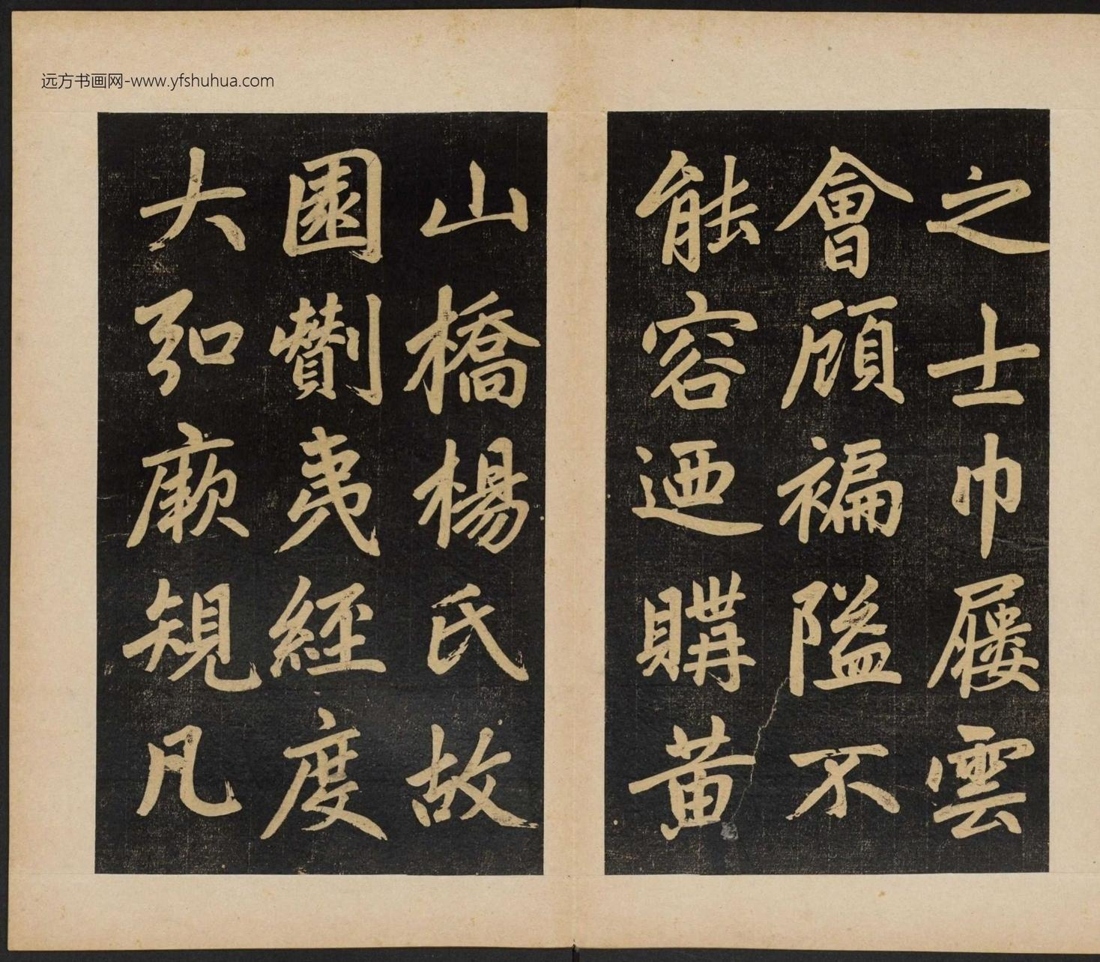 远方书画网-www.yfshuhua.com
之士巾屨雲
會顧褊隘不
能容迺購黃
山橋楊氏故
園劗夷經度
大弘厥規凡